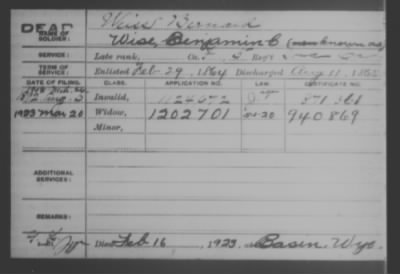 DEAD
Weiss Bernard
NAME OF SOLDIER:
Wise, Benjamin C (now known as)
SERVICE:
Late rank, Co. Reg't
TERM OF SERVICE:
Enlisted Feb 29, 1864 Discharged Aug 11, 1865
DATE OF FILING. CLASS. APPLICATION NO. LAW. CERTIFICATE NO.
Invalid,
1923 Mar 20 Widow, 1202701 940869
Minor,
ADDITIONAL SERVICES:
REMARKS:
Died Feb 16, 1923, at Basin, Wyo.